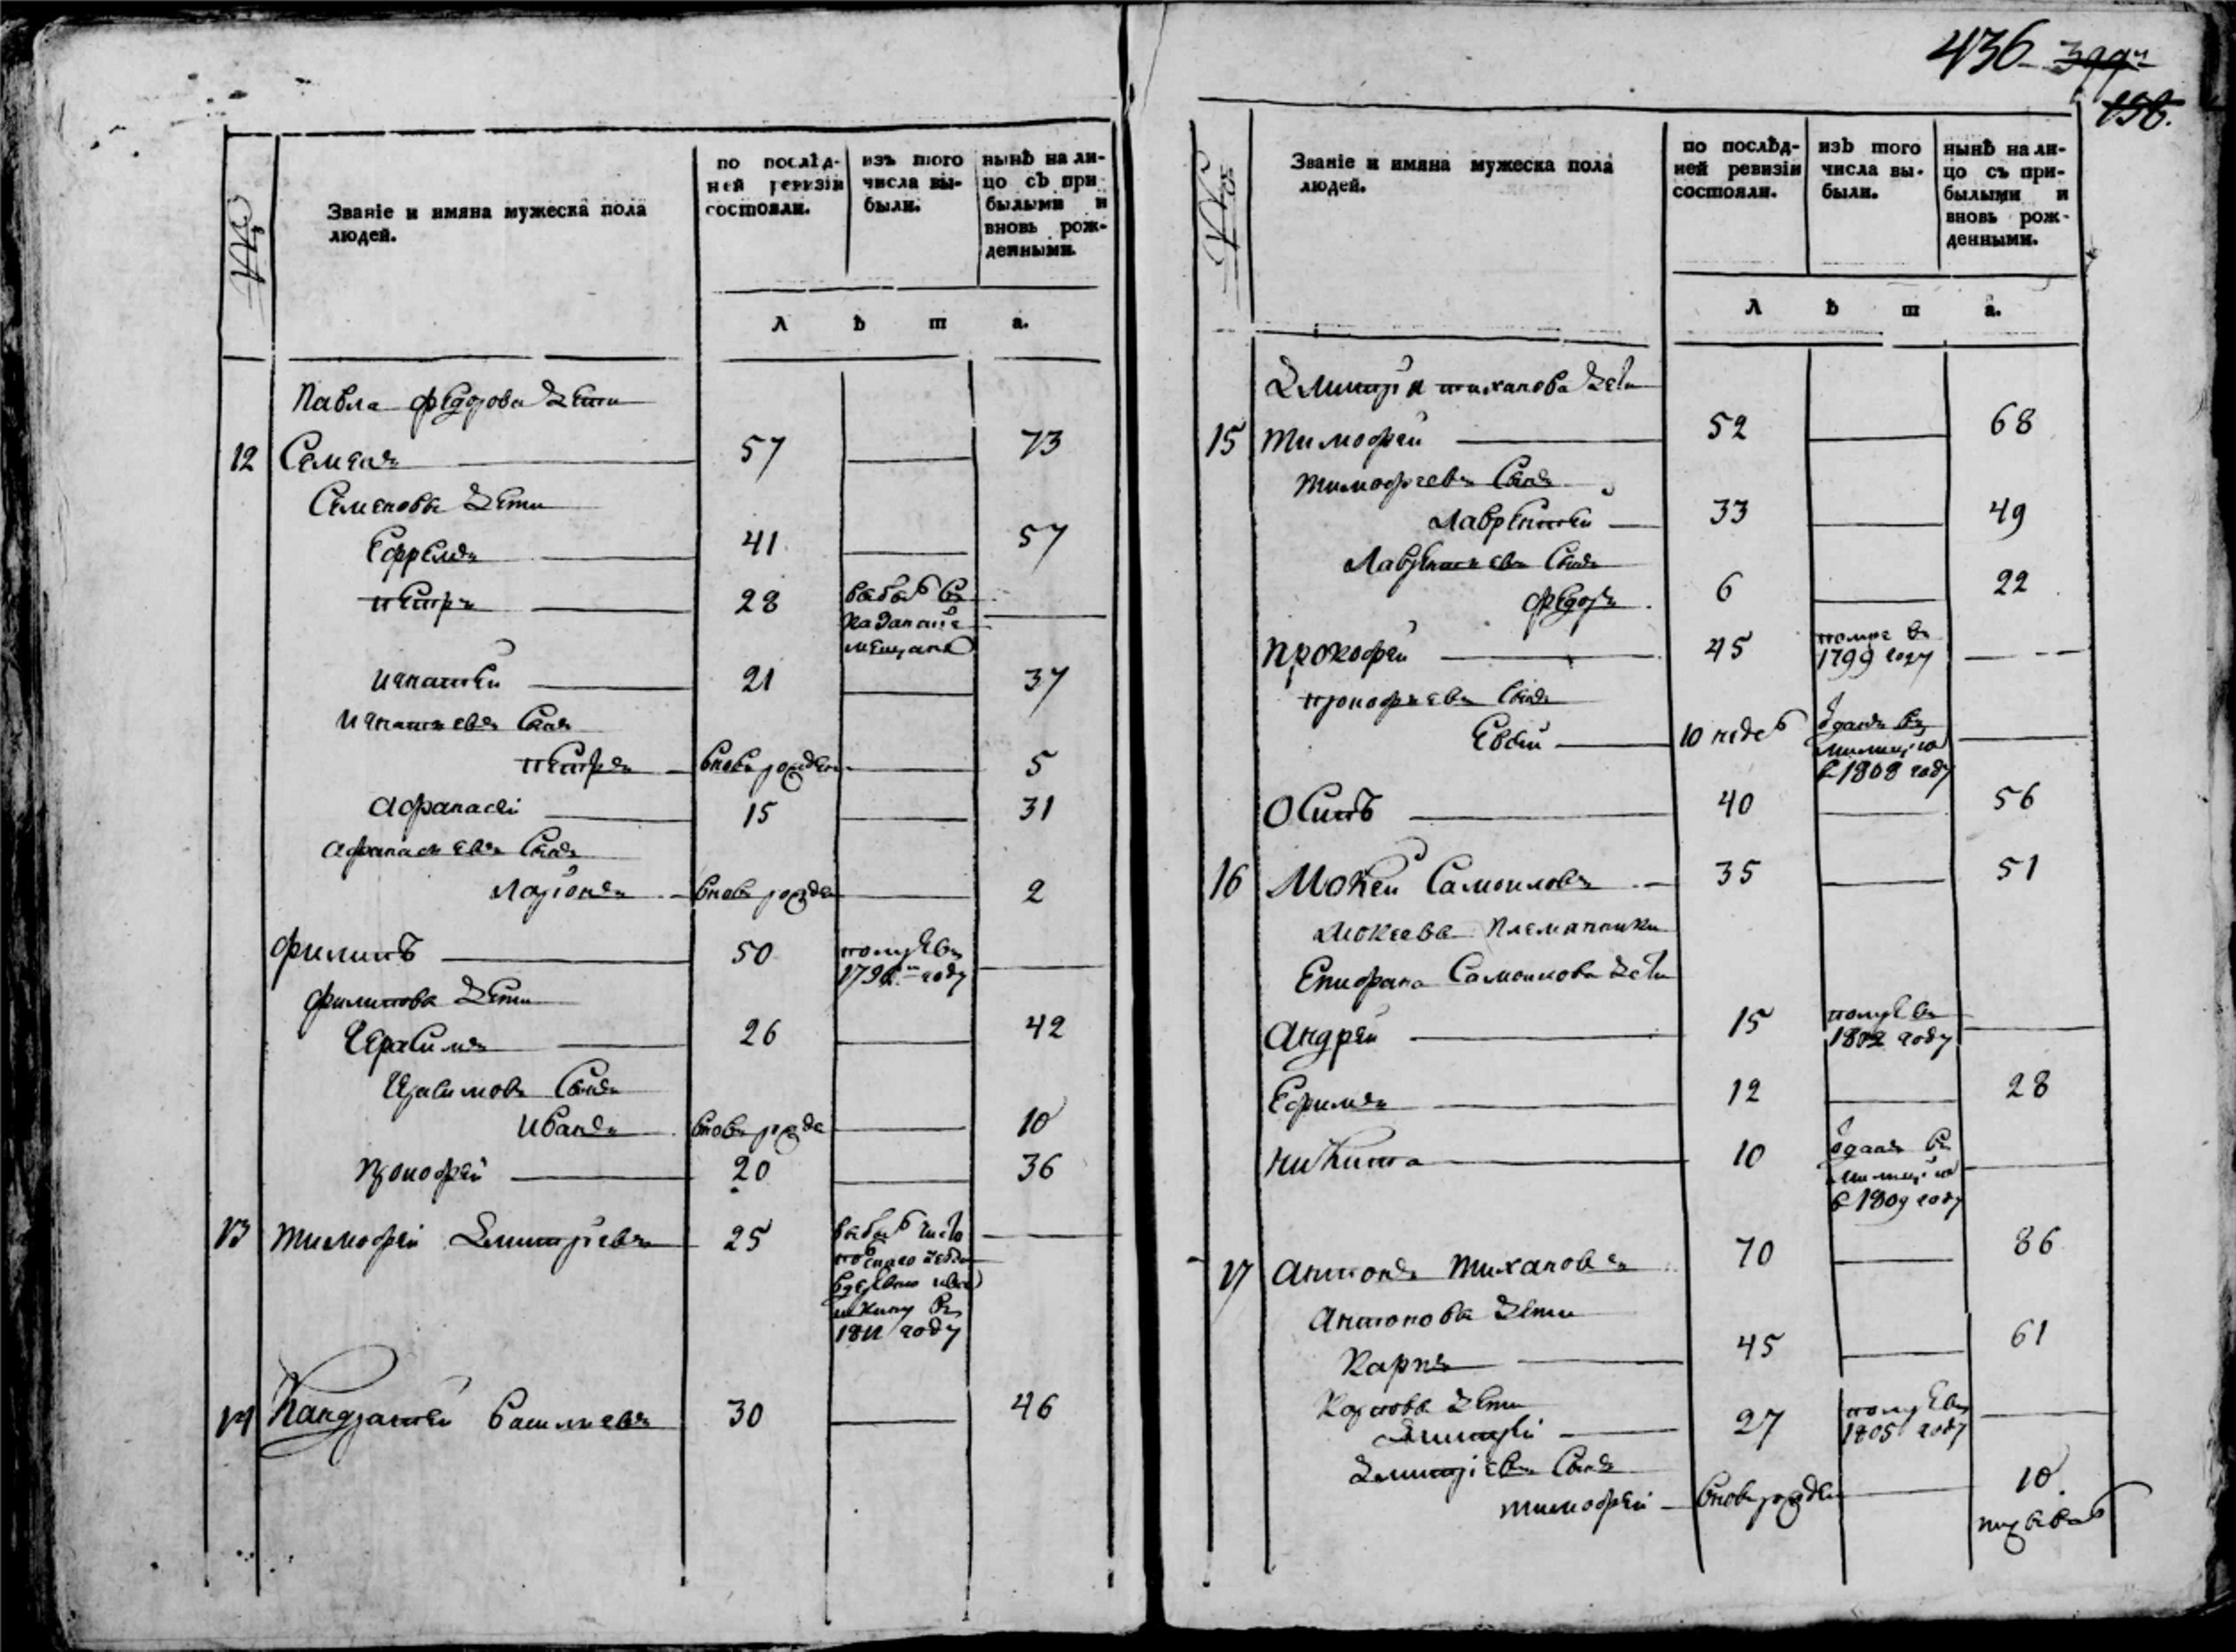 436 399
156.
№
Званіе и имяна мужеска пола
людей.
по послѣд-
ней ревизіи
состояли.
изъ того
числа вы-
были.
нынѣ на ли-
цо съ при-
былыми и
вновь рож-
денными.
л ѣ т а.
Павла Федорова дети
12 Семенъ 57 73
Семеновы дети
Ефремъ 41 57
Петръ 28 выбылъ въ
мещана
Игнатей 21 37
Игнатьевъ сынъ
Петръ вновь рожден 5
Афанасей 15 31
Афанасьевъ сынъ
Ларіонъ вновь рожде 2
Филипъ 50 помре въ
году
Филипова дети
Герасимъ 26 42
Герасимовъ сынъ
Иванъ вновь рожде 10
Прокофей 20 36
13 Тимофей Дмитріевъ 25 выбылъ
въ
1811 году
14 Кандратей Васильевъ 30 46
№
Званіе и имяна мужеска пола
людей.
по послѣд-
ней ревизіи
состояли.
изъ того
числа вы-
были.
нынѣ на ли-
цо съ при-
былыми и
вновь рож-
денными.
л ѣ т а.
Дмитрія Тиханова дети
15 Тимофей 52 68
Тимофеевъ сынъ
Лаврентей 33 49
Лаврентьевъ сынъ
Федоръ 6 22
Прокофей 45 помре въ
1799 году
Прокофьевъ сынъ
Евсей 10 недель отданъ въ
милицію
в 1808 году
Осипъ 40 56
16 Мокей Самоиловъ 35 51
Мокеева племянники
Епифана Самоилова дети
Андрей 15 помре въ
1802 году
Ефимъ 12 28
Никита 10 отданъ въ
милицію
в 1809 году
17 Антонъ Тихановъ 70 86
Антоновы дети
Карпъ 45 61
Карповы дети
Дмитрей 27 помре въ
1805 году
Дмитріевъ сынъ
Тимофей вновь рожден 10